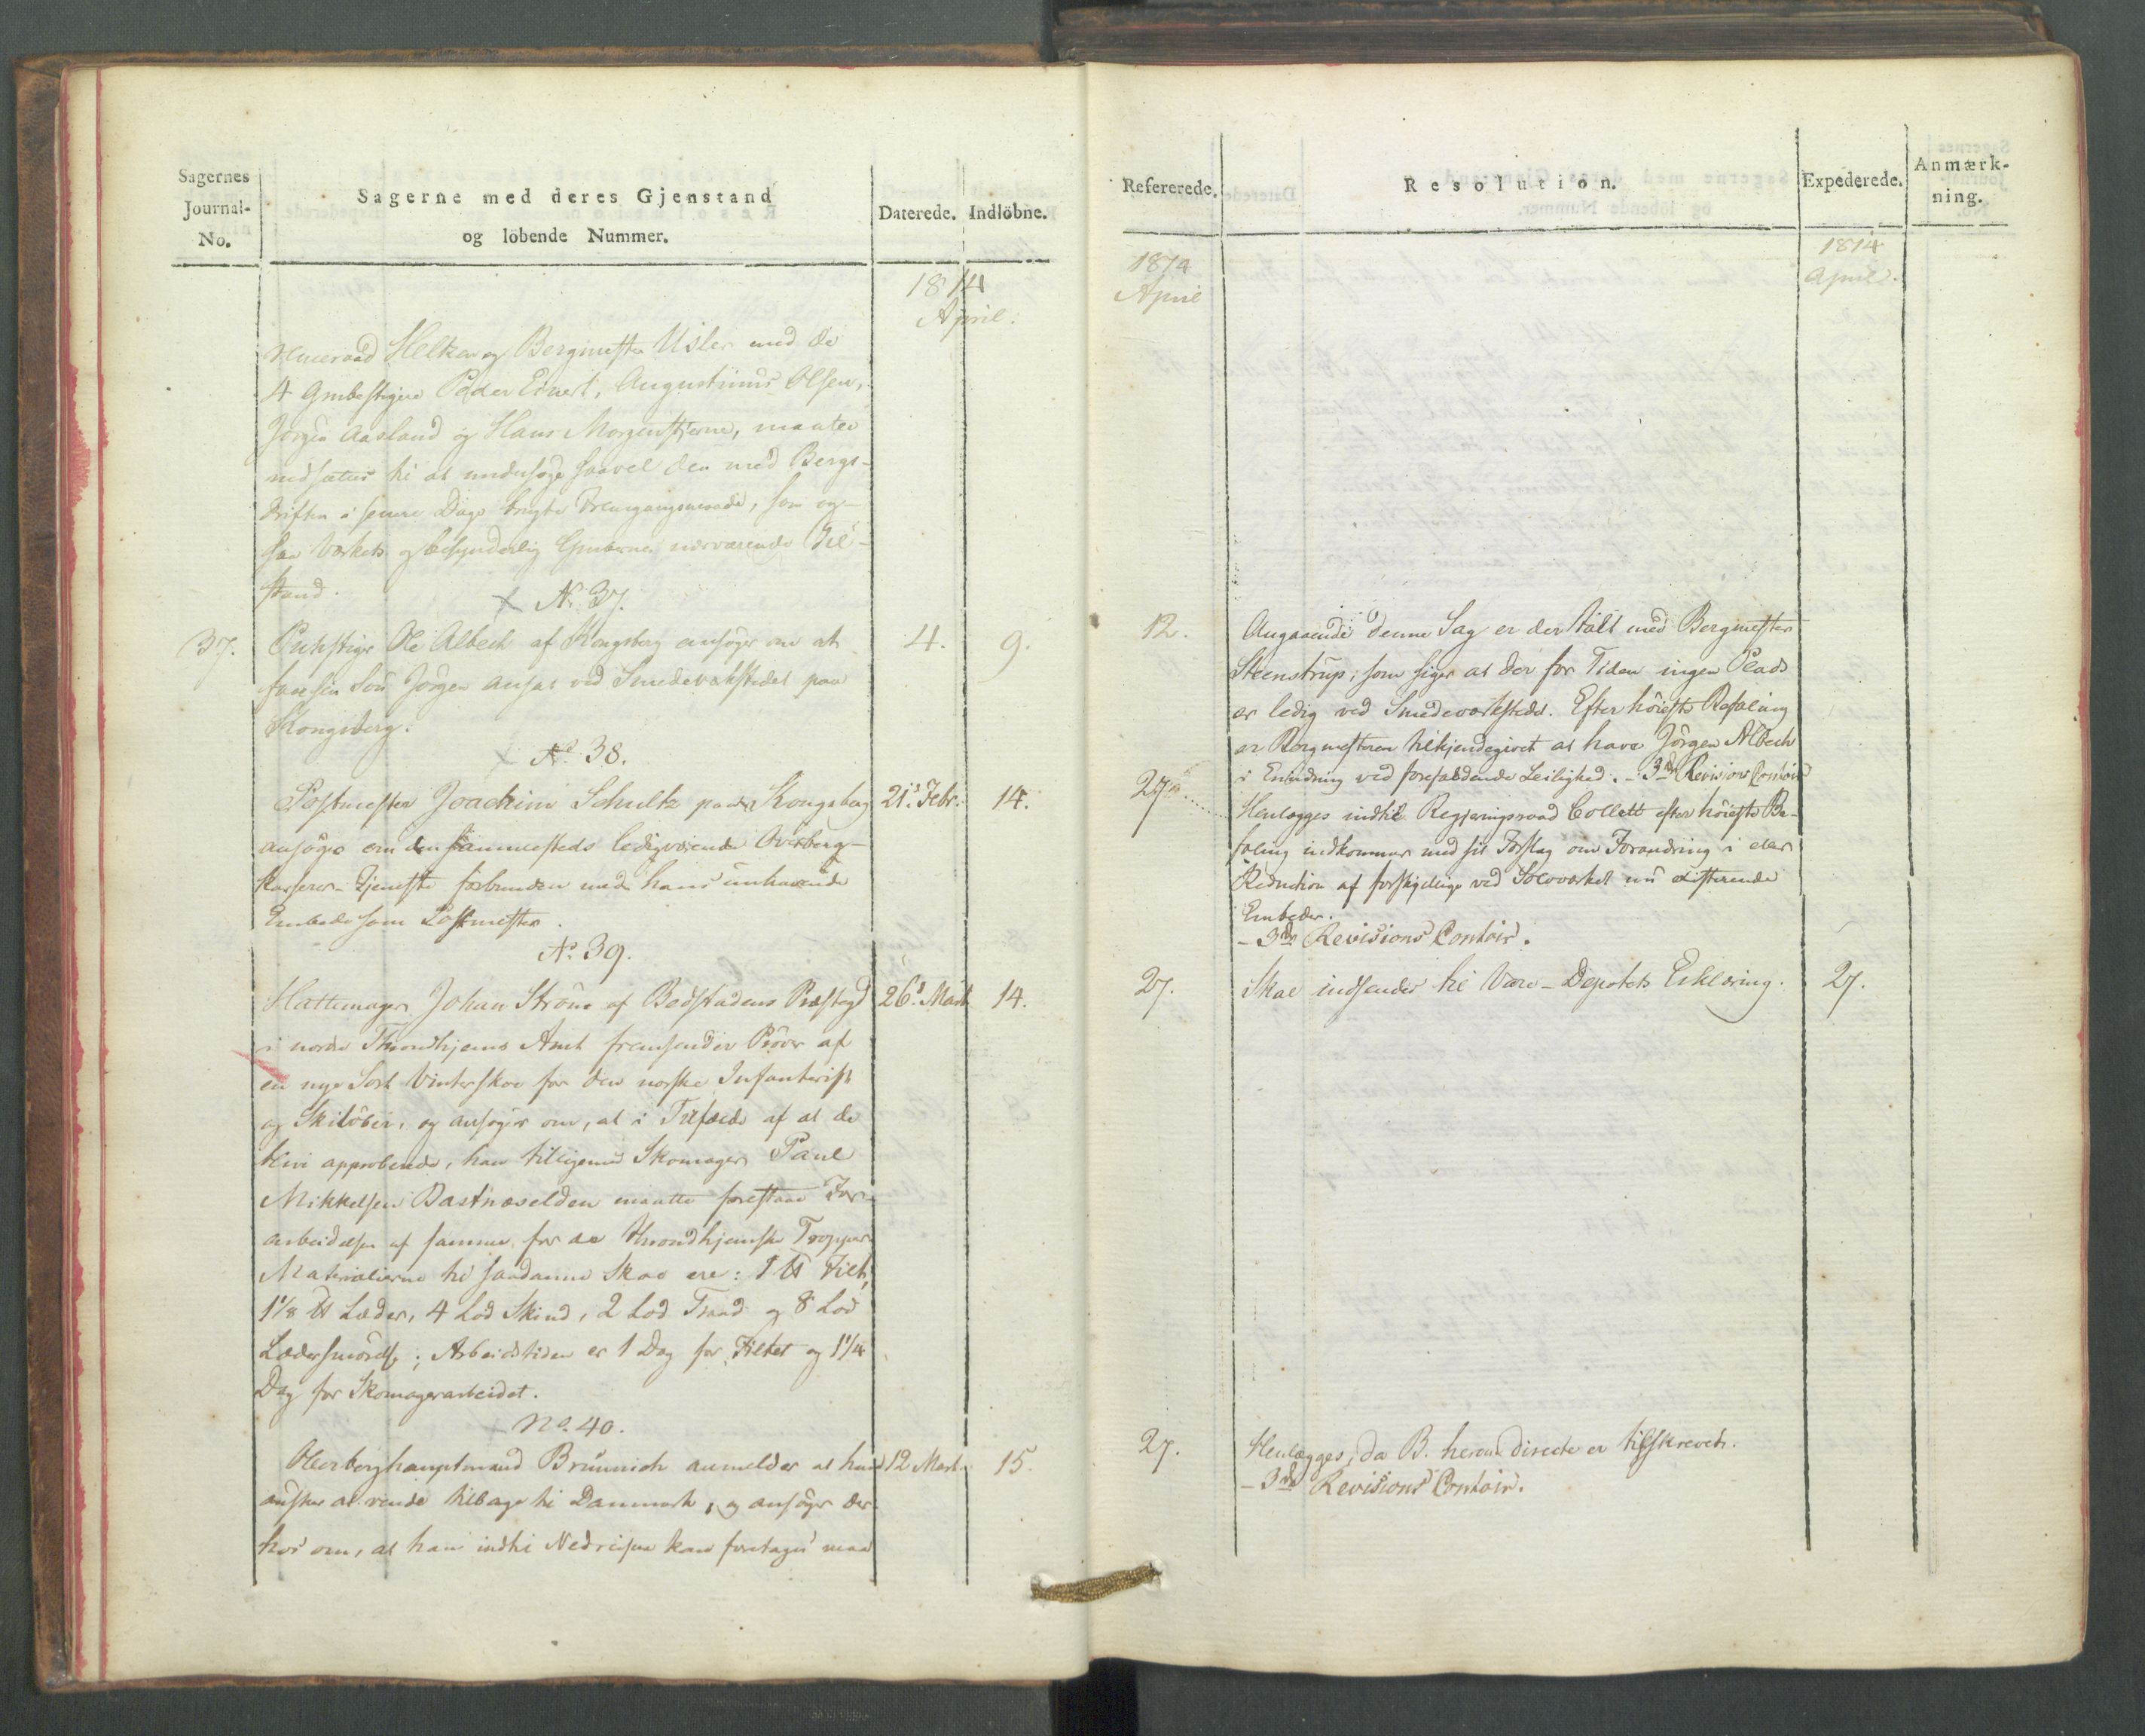 Sagernes
Journal-
No.
Sagerne med deres Gjenstand
og løbende Nummer.
Daterede.
Indløbne.
1814
April.
Helker og Bergmester Usler med de
4 Grubestigere Peder Einert, Augustinus Olsen,
Jørgen Aasland og Hans Morgenstjerne, maatte
nedsættes til at undersøge saavel den med Bergs-
Driften i senere Dage brugte Fremgangsmaade, som og-
saa Værkets og besynderlig Grubernes nærværende Til-
stand.
N. 37.
37.
Pukstiger Ole Albech af Kongsberg ansøger om at
faae sin Søn Jørgen ansat ved Smedeværkstedet paa
Kongsberg.
4.
9.
No. 38.
Postmester Joachim Schultz paa Kongsberg
ansøger om den sammesteds ledigværende Overberg-
Kasserer-Tjeneste forbunden med hans innhavende
Embede som Postmester.
21. Febr.
14.
No. 39.
Hattemager Johan Strøm af Bedstadens Præstegd
i nordre Throndhjems Amt fremsender Prøver af
en nye Sort Vinterskoe for den norske Infanterist
og Skiløber, og ansøger om, at i Tilfælde af at de
blive approberede, han tilligemed Skomager Paul
Mikkelsen Bastnæselden maatte forestaae For-
arbeidelsen af samme for de throndhjemske Tropper
Materialierne til saadanne Skoe ere: 1 ℔ Filt,
1 1/8 ℔ Læder, 4 Lod Skind, 2 Lod Traad og 8 Lod
Lædersmørelse; Arbeidstiden er 1 Dag for Filtet og 1 1/4
Dag for Skomagerarbeidet.
26. Mart
14.
No. 40.
Oberberghauptmand Brünnich anmelder at han
ønsker at vende tilbage til Danmark, og ansøger der-
hos om, at han indtil Nedreisen kan foretages maa
12 Mart.
15.
Refererede.
Resolution.
Expederede.
Anmærk-
ning.
1814
April
1814
April.
12.
Angaaende denne Sag er der talt med Bergmester
Steenstrup, som siger at der for Tiden ingen Plads
er ledig ved Smedeværkstedet. Efter høieste Befaling
er Bergmesteren tilkjendegivet at have Jørgen Albech
i Erindring ved forefaldende Leilighed. - 3de Revisions Contoir
27.
Henlægges indtil Regjeringsraad Collett efter høieste Be-
faling indkommer med sit Forslag om Forandring i eller
Reduction af forskjellige ved Sølvværket nu existerende
Embeder.
- 3de Revisions Contoir.
27.
Skal indsendes til Vare-Depotets Erklæring.
27.
27.
Henlægges, da B. herom directe er tilskrevet.
- 3de Revisions Contoir.